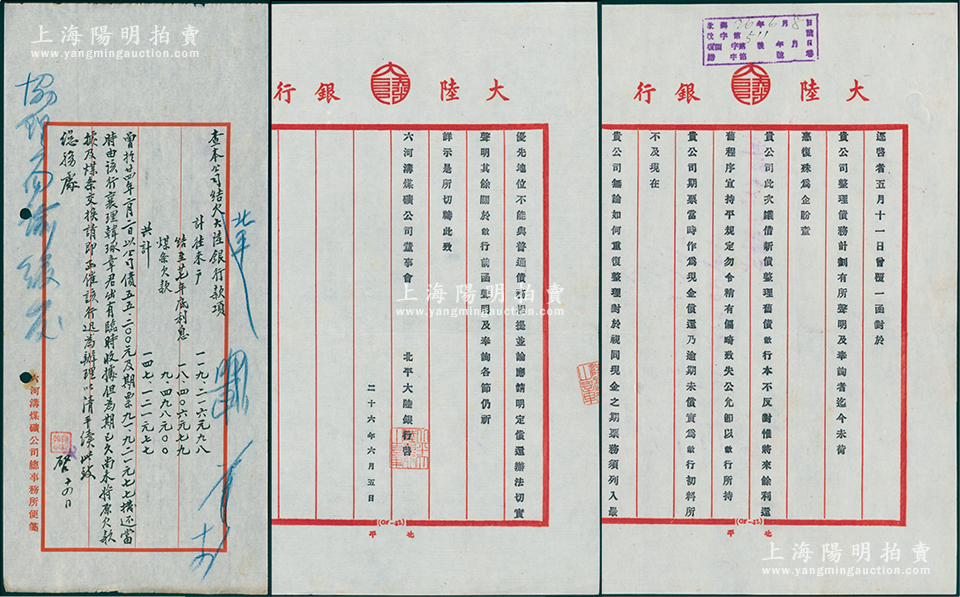 大陸銀行
逕啓者五月十一日曾覆一函對於
貴公司整理債務計劃有所聲明及奉詢者迄今未荷
惠復殊爲企盼查
貴公司此次議借新債整理舊債敝行本不反對惟將來餘利還
舊程序宜持平規定勿令稍有偏畸致失公允卽以敝行所持
貴公司期票當時作爲現金償還乃逾期未償實爲敝行初料所
不及現在
貴公司無論如何重復整理對於視同現金之期票務須列入最
(Gr-42)
北平
大陸銀行
優先地位不能與普通債務相提並論應請明定償還辦法切實
聲明其餘關於敝行前函聲明及奉詢各節仍祈
詳示是所切禱此致
六河溝煤礦公司董事會
北平大陸銀行啓
二十六年六月五日
(Gr-42)
北平
查本公司結欠大陸銀行款項
計往來戶 一一九、二一六元九八
結至廿五年底利息 一八、四〇六元七九
煤条欠款 九、四九八元〇〇
共計 一四七、一二一元七七
曾於廿四年二月二日以公司債五五、二〇〇元及期票九一、九二一元七七撥还當
時由該行襄理韓琢章君出有臨時收據但為期已久尚未將原欠款
據及煤条交換請即函催該行迅為辦理以清手續此致
總務處
啓 十四日
六河溝煤礦公司總事務所便箋
上海陽明拍賣
www.yangmingauction.com
上海陽明拍賣
www.yangmingauction.com
上海陽明拍賣
www.yangmingauction.com